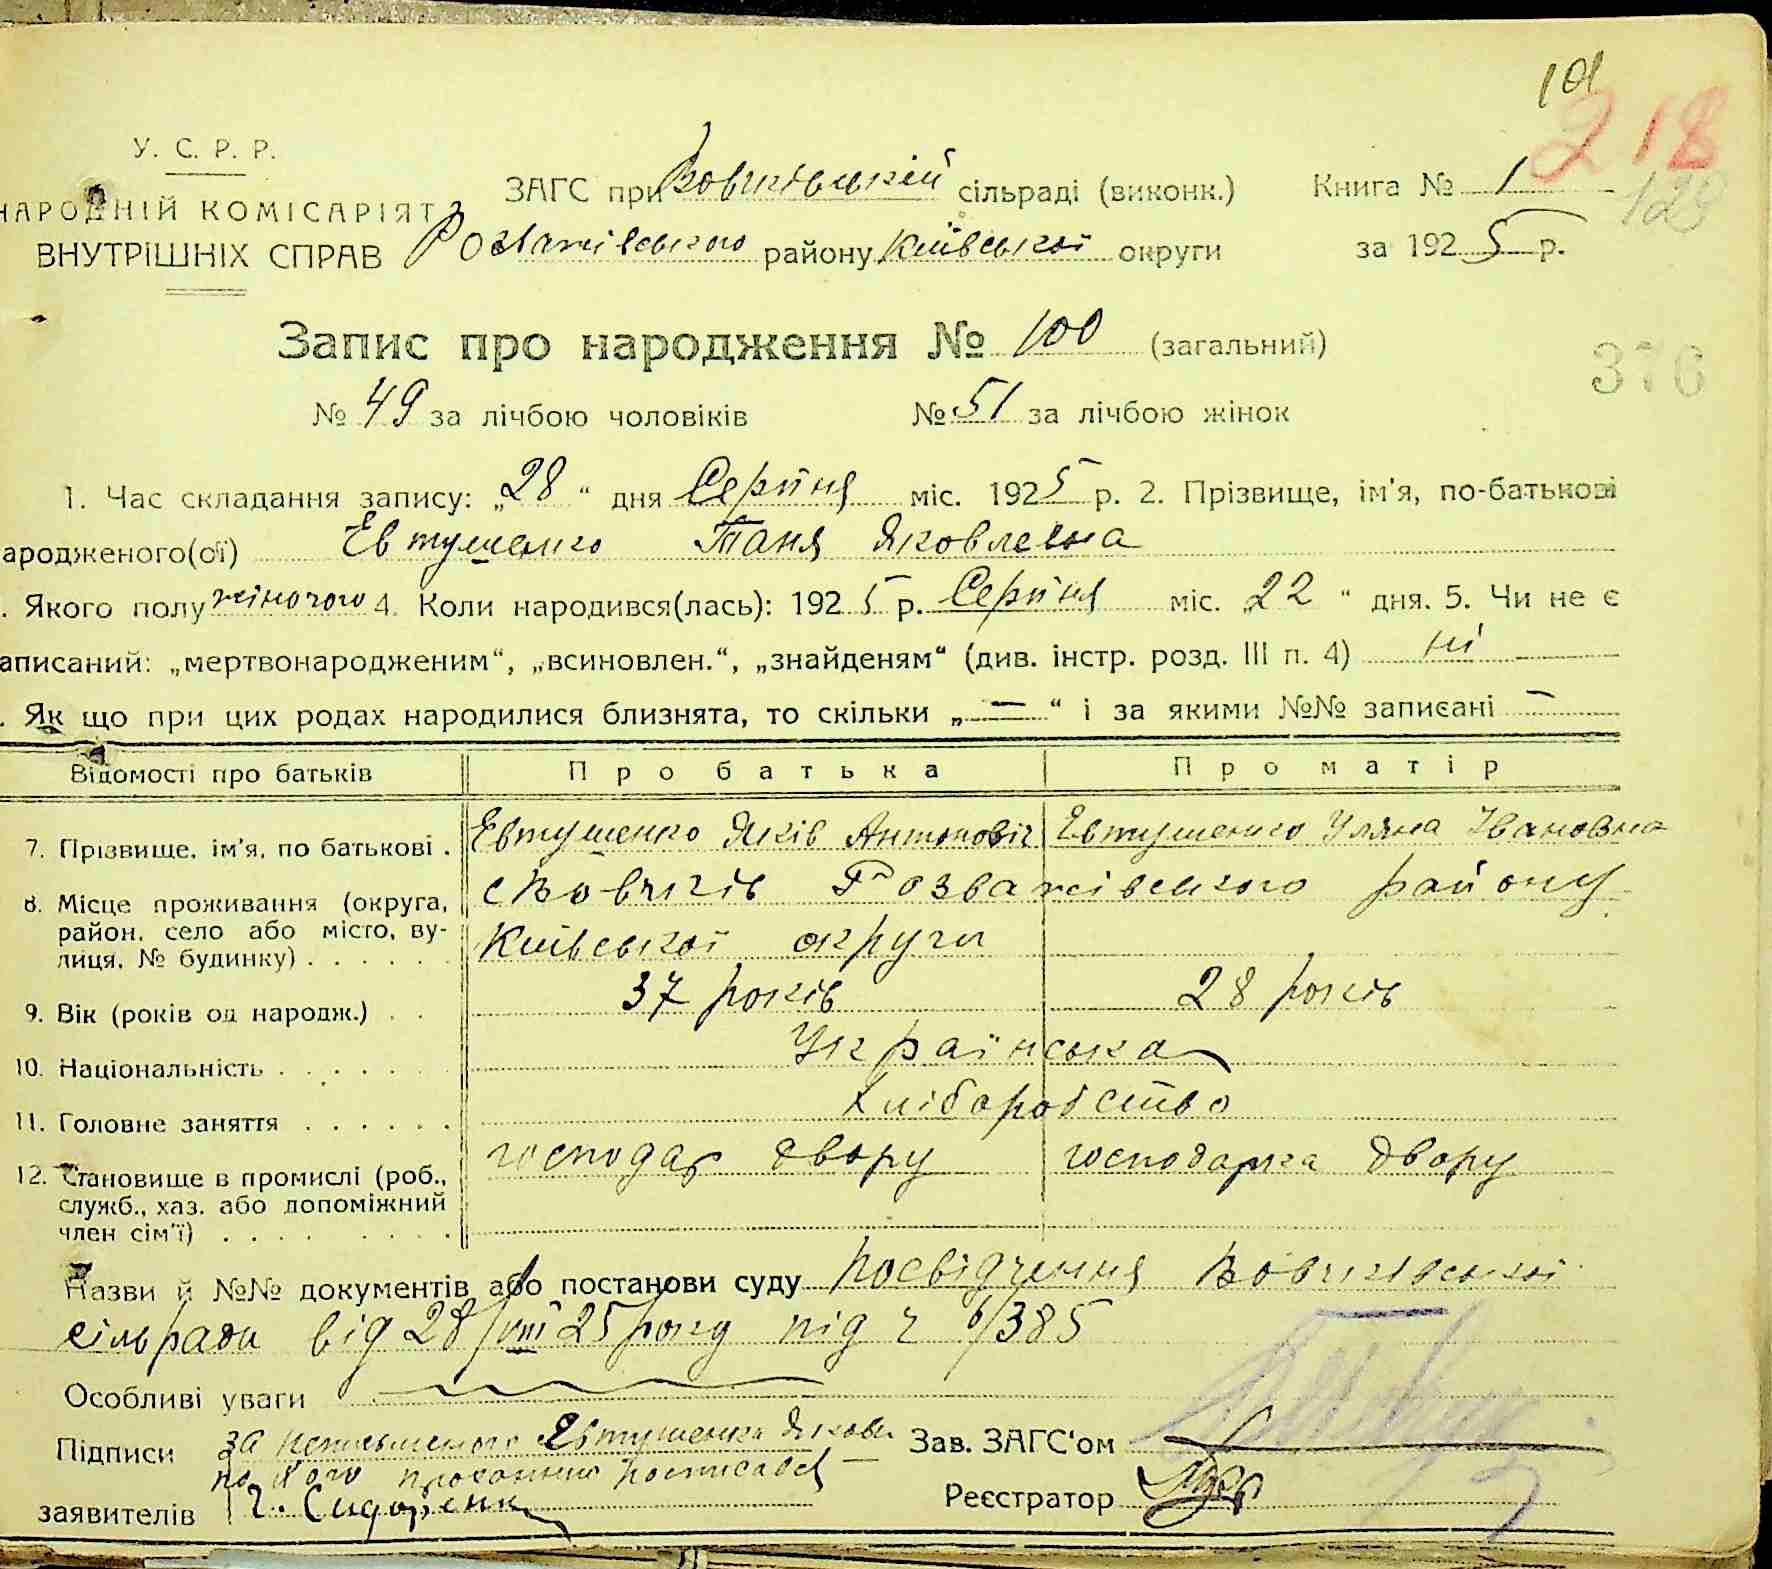 101
218
129
У. С. Р. Р.
НАРОДНІЙ КОМІСАРІЯТ
ВНУТРІШНІХ СПРАВ
ЗАГС при Вовчківській сільраді (виконк.)
Розважівського району Київської округи
Книга № 1
за 1925 р.
Запис про народження № 100 (загальний)
376
№ 49 за лічбою чоловіків № 51 за лічбою жінок
1. Час складання запису: „28“ дня Серпня міс. 1925 р. 2. Прізвище, ім'я, по-батькові
ародженого(ої) Евтушенко Таня Яковлевна
. Якого полу жіночого 4. Коли народився(лась): 1925 р. Серпня міс. 22 “ дня. 5. Чи не є
аписаний: „мертвонародженим“, „всиновлен.“, „знайденям“ (див. інстр. розд. III п. 4) ні
. Як що при цих родах народилися близнята, то скільки „—“ і за якими №№ записані —
Відомості про батьків Про батька Про матір
7. Прізвище, ім'я, по батькові . Евтушенко Яків Антонович Евтушенко Уляна Івановна
8. Місце проживання (округа, район, село або місто, вулиця, № будинку) . . . . . . с Вовчків Розважівського району
Київської округи
9. Вік (років од народж.) . . 37 років 28 років
10. Національність . . . . . . Українська
11. Головне заняття . . . . . . Хліборобство
12. Становище в промислі (роб., служб., хаз. або допоміжний член сім'ї) . . . . . . . . господар двору господарка двору
Назви й №№ документів або постанови суду посвідчення Вовчківської
сільради від 28/VIII 25 року під ч 6/385
Особливі уваги
Підписи за неписьменого Евтушенка Якова
по його проханню росписався —
заявителів Г. Сидоренко
Зав. ЗАГС'ом
Реєстратор